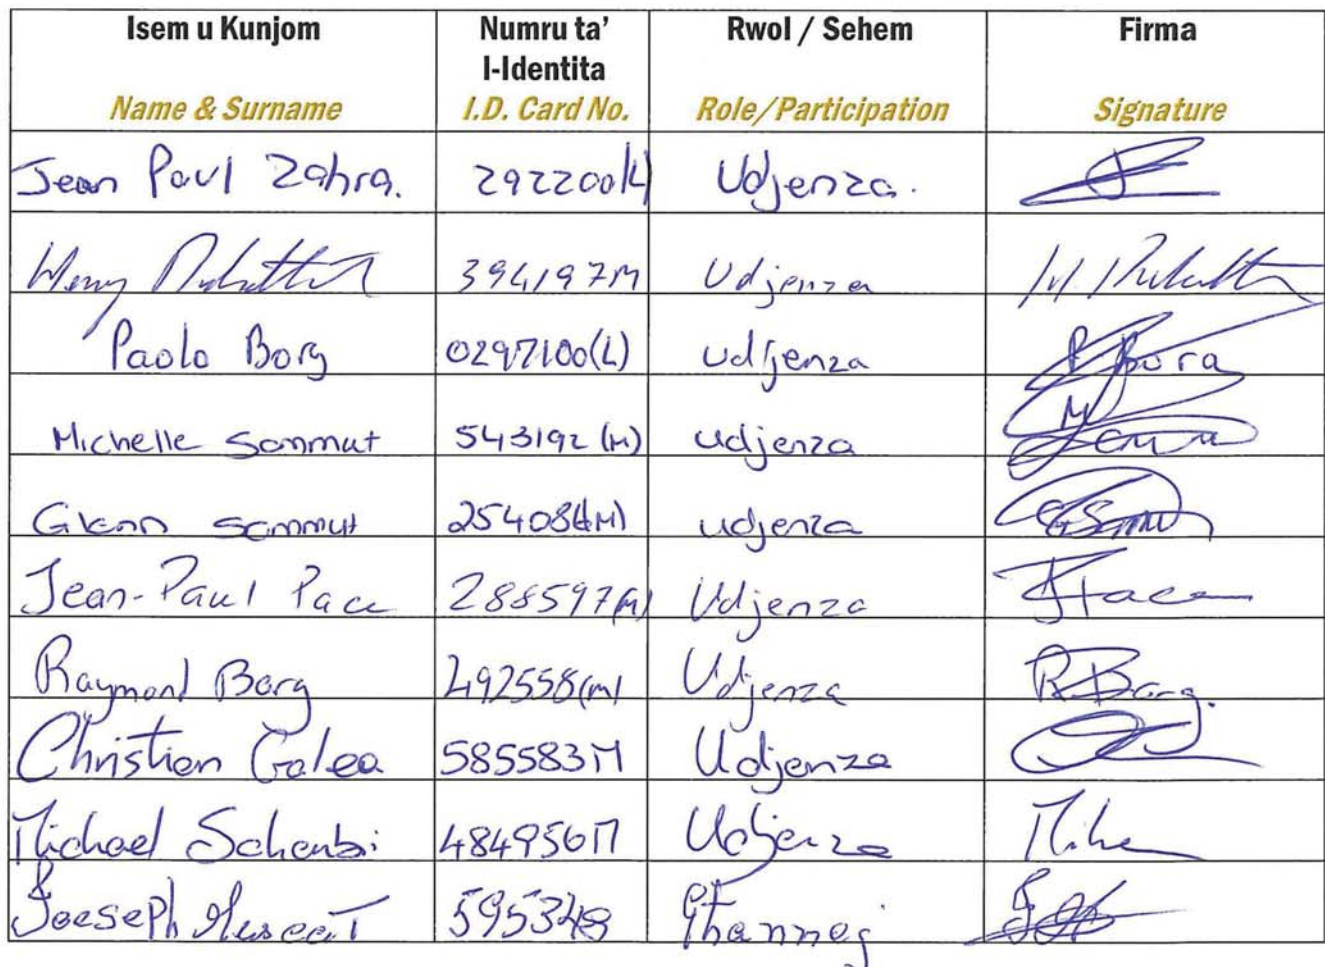 Isem u Kunjom Numru ta' Rwol / Sehem Firma
l-Identita
Name & Surname I.D. Card No. Role/Participation Signature
Jean Paul Zahra. 292200(L) Udjenza.
394197M Udjenza
Paolo Borg 0297100(L) udjenza P Borg
Michelle Sammut 543192 (M) udjenza
Glenn Sammut 254084(M) udjenza
Jean-Paul Pace 288597(M) Udjenza JPace
Raymond Borg 492558(M) Udjenza R Borg.
Christian Galea 585583M Udjenza
Michael Schembri 484956M Udjenza
Joeseph Muscat 595348 Għannej